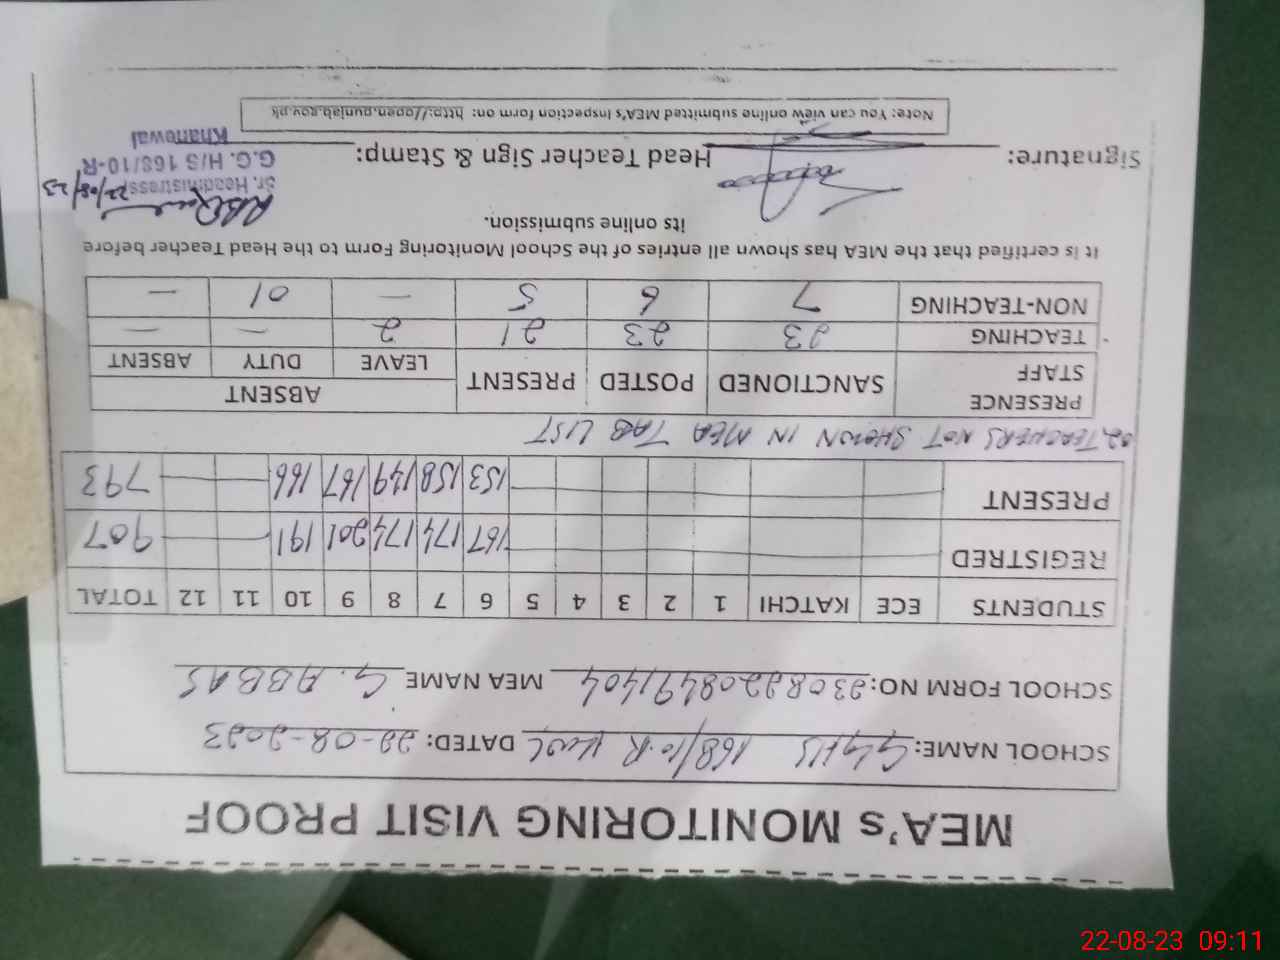 MEA's MONITORING VISIT PROOF
SCHOOL NAME: GGHS 168/10-R KWL DATED: 22-08-2023
SCHOOL FORM NO: 23082208491404 MEA NAME G. ABBAS
STUDENTS ECE KATCHI 1 2 3 4 5 6 7 8 9 10 11 12 TOTAL
REGISTRED 167 174 174 201 191 907
PRESENT 153 158 149 167 166 793
02, TEACHERS NOT SHOWN IN MEA TAB LIST
PRESENCE STAFF SANCTIONED POSTED PRESENT ABSENT
LEAVE DUTY ABSENT
TEACHING 23 23 21 2 — —
NON-TEACHING 7 6 5 — 01 —
It is certified that the MEA has shown all entries of the School Monitoring Form to the Head Teacher before
its online submission.
22/08/23
Sr. Headmistress
G.G. H/S 168/10-R
Khanewal
Signature: Head Teacher Sign & Stamp:
Note: You can view online submitted MEA's Inspection form on: http://open.punjab.gov.pk
22-08-23 09:11